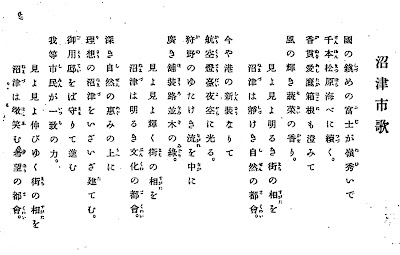 沼津市歌
國の鎭めの富士が嶺秀いで
千本松原海べに續く。
香貫愛鷹箱根も澄みて
風の輝き蔬菜の香り。
見よ見よ明るき街の相を
沼津は靜けき自然の都會。
今や港の新裝なりて
航空燈臺夜空に光る。
狩野のゆたけき流を中に
廣き舖裝路並木の綠。
見よ見よ輝く街の相を
沼津は明るき文化の都會。
深き自然の惠みの上に
理想の沼津をいざいざ建てむ。
御用邸をば守りて進む
我等市民が一致の力。
見よ見よ伸びゆく街の相を
沼津は微笑む希望の都會。